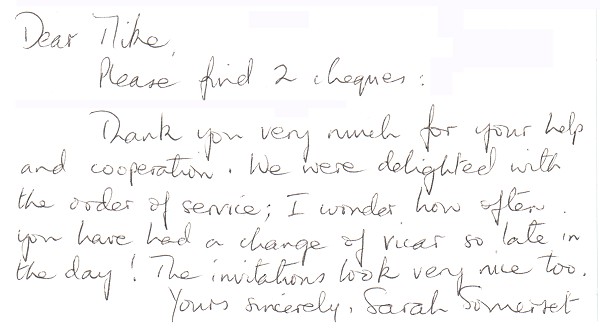 Dear Mike,
Please find 2 cheques:
Thank you very much for your help
and cooperation. We were delighted with
the order of service; I wonder how often
you have had a change of vicar so late in
the day! The invitations look very nice too.
Yours sincerely, Sarah Somerset